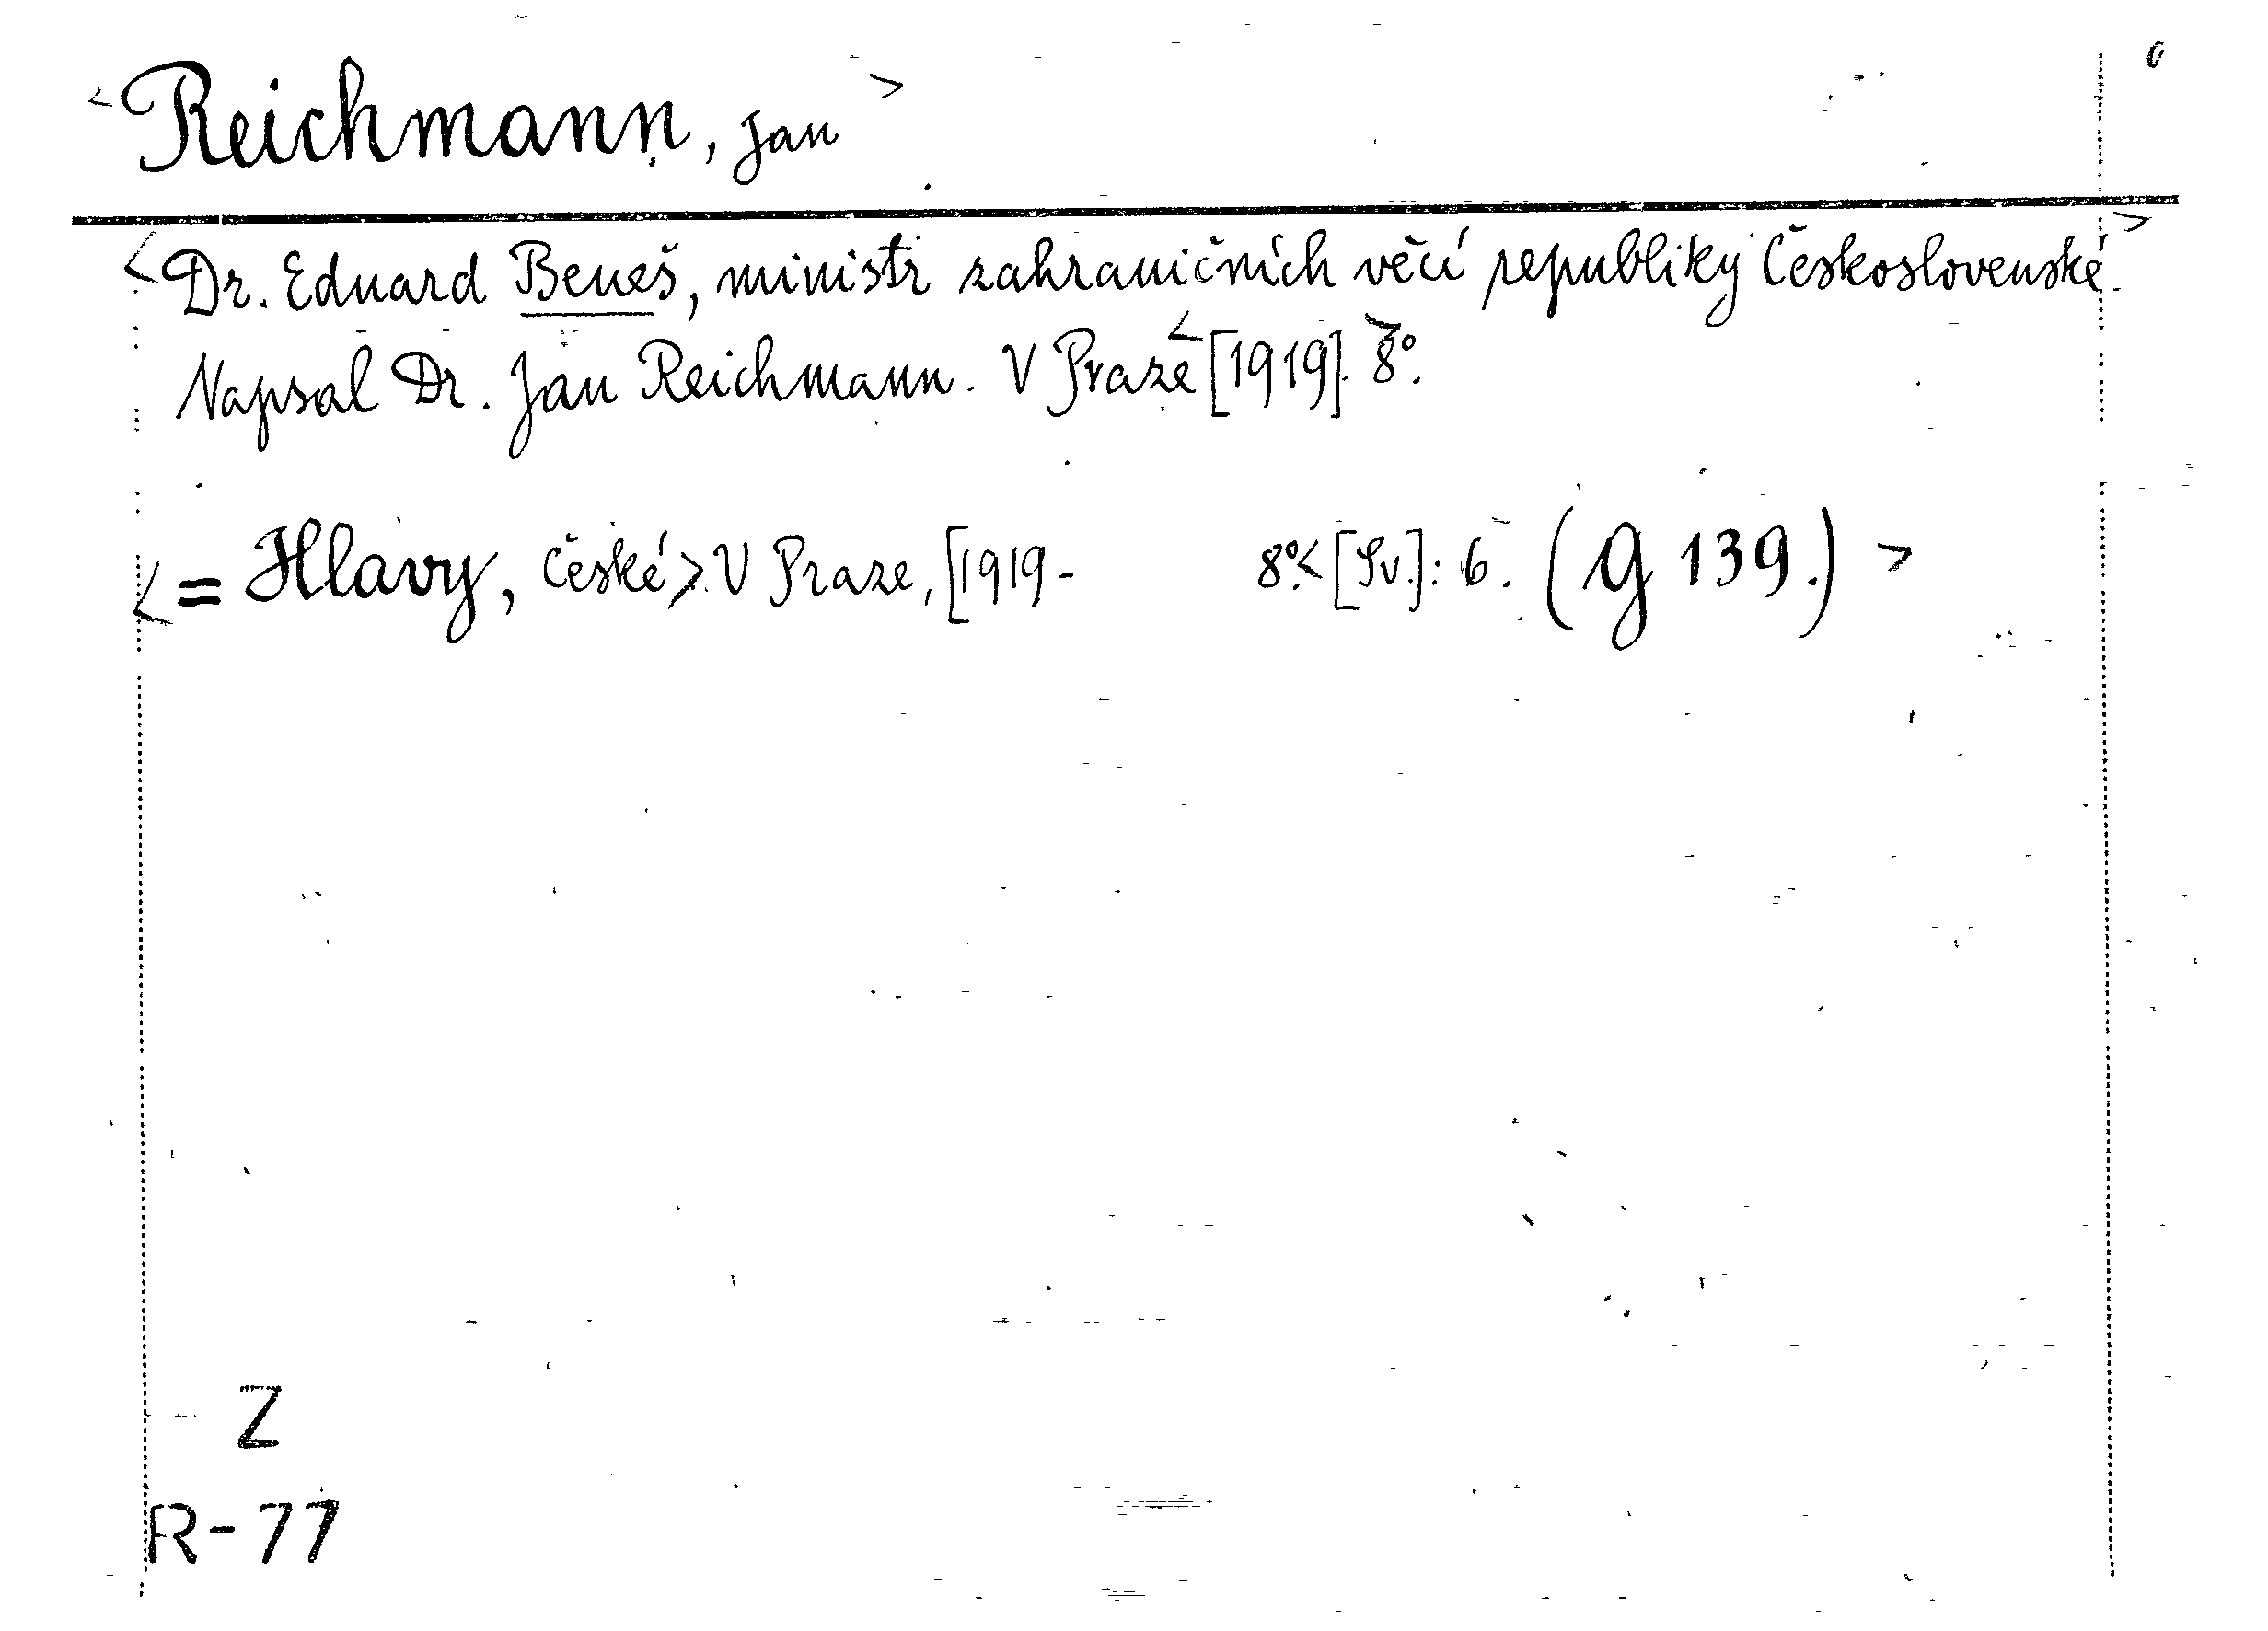 <Reichmann, Jan>
<Dr. Eduard Beneš, ministr zahraničních věcí republiky Československé.>
Napsal Dr. Jan Reichmann. V Praze <[1919].> 8°.
<= Hlavy, České>. V Praze, [1919- 8°.< [Sv.]: 6. (G 139.) >
Z
R-77